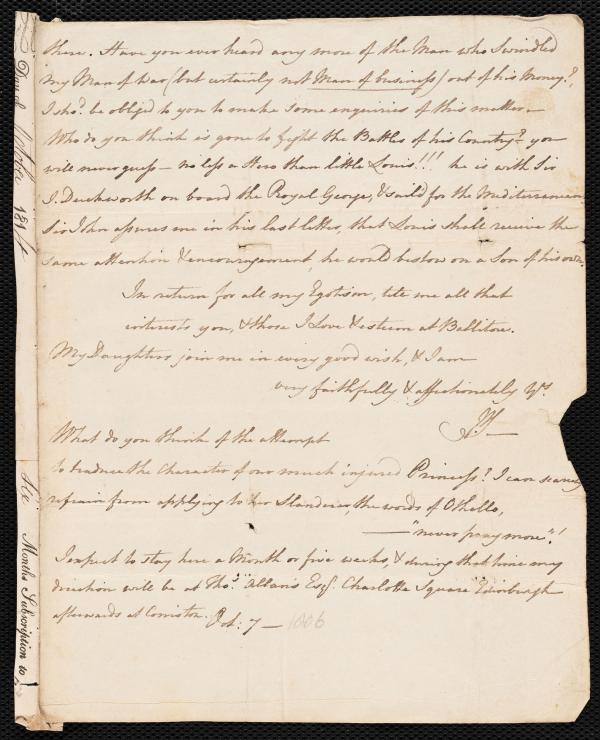 there. Have you ever heard any more of the Man who Swindled
my Man of War (but certainly not Man of business) out of his Money?,
I shod. be oblig'd to you to make some enquiries of this matter —
Who do you think is gone to fight the Battles of his Country? you
will never guess — no less a Hero than little Louis!!! he is with Sir
J. Duckworth on board the Royal George, & sail'd for the Mediterranean
Sir John assures me in his last letter, that Louis shall receive the
same attention & encouragement, he would bestow on a Son of his own.
In return for all my Egotism, tele me all that
interests you, & those I Love & esteem at Ballitore.
My Daughters join me in every good wish, & I am
very faithfully & affectionately Yrs.
What do you think of the attempt
to traduce the Character of our much injured Princess? I can scarcely
refrain from applying to her Slanderer, the words of Othello,
— "never pray more"!
I expect to stay here a Month or five weeks, & during that time my
direction will be at Thos. Allan's Esqr. Charlotte Square Edinburgh
afterwards at Coniston. Oct: 7 — 1806
October 181
Six Months Subscription to